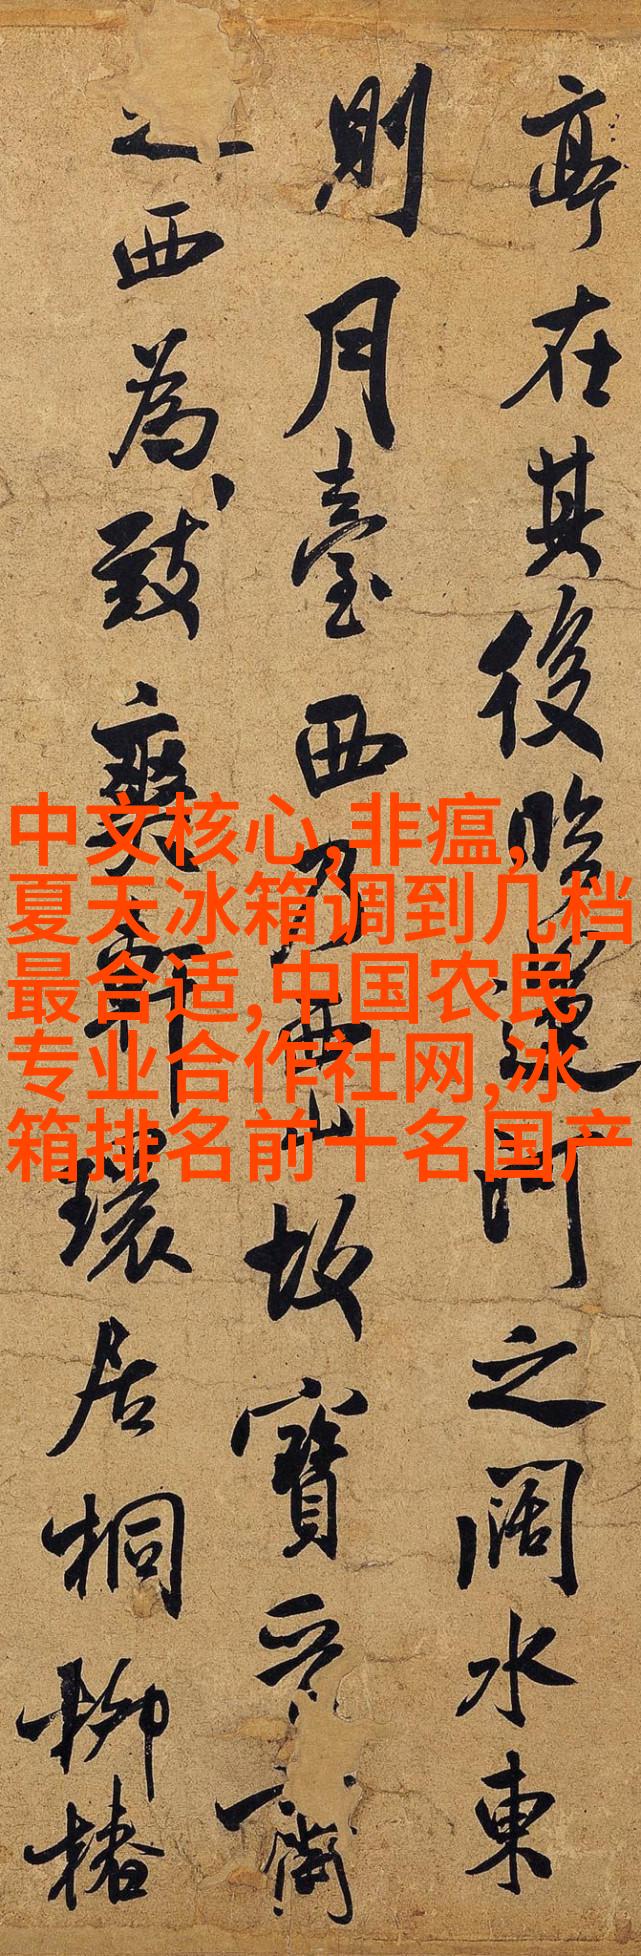 亭在其後臨運河之闊水東
則月臺西乃西山故寶晉齋
之西為致爽軒環居桐柳椿
中文核心,非瘟,
夏天冰箱调到几档
最合适,中国农民
专业合作社网,冰
箱排名前十名国产